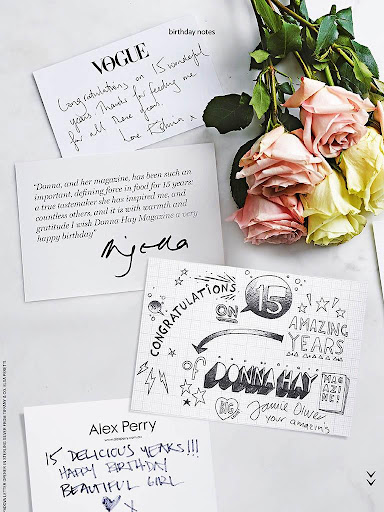 birthday notes
VOGUE
Congratulations on 15 wonderful
years. Thanks for feeding me
for all those years.
Love Edwina x
'Donna, and her magazine, has been such an
important, defining force in food for 15 years:
a true tastemaker she has inspired me, and
countless others, and it is with warmth and
gratitude I wish Donna Hay Magazine a very
happy birthday'
Nigella
CONGRATULATIONS
ON
15
AMAZING
YEARS
OF
DONNA HAY
MAGAZINE!
Jamie Oliver
your amazin's
Alex Perry
www.alexperry.com.au
15 DELICIOUS YEARS!!!
HAPPY BIRTHDAY
BEAUTIFUL GIRL
X